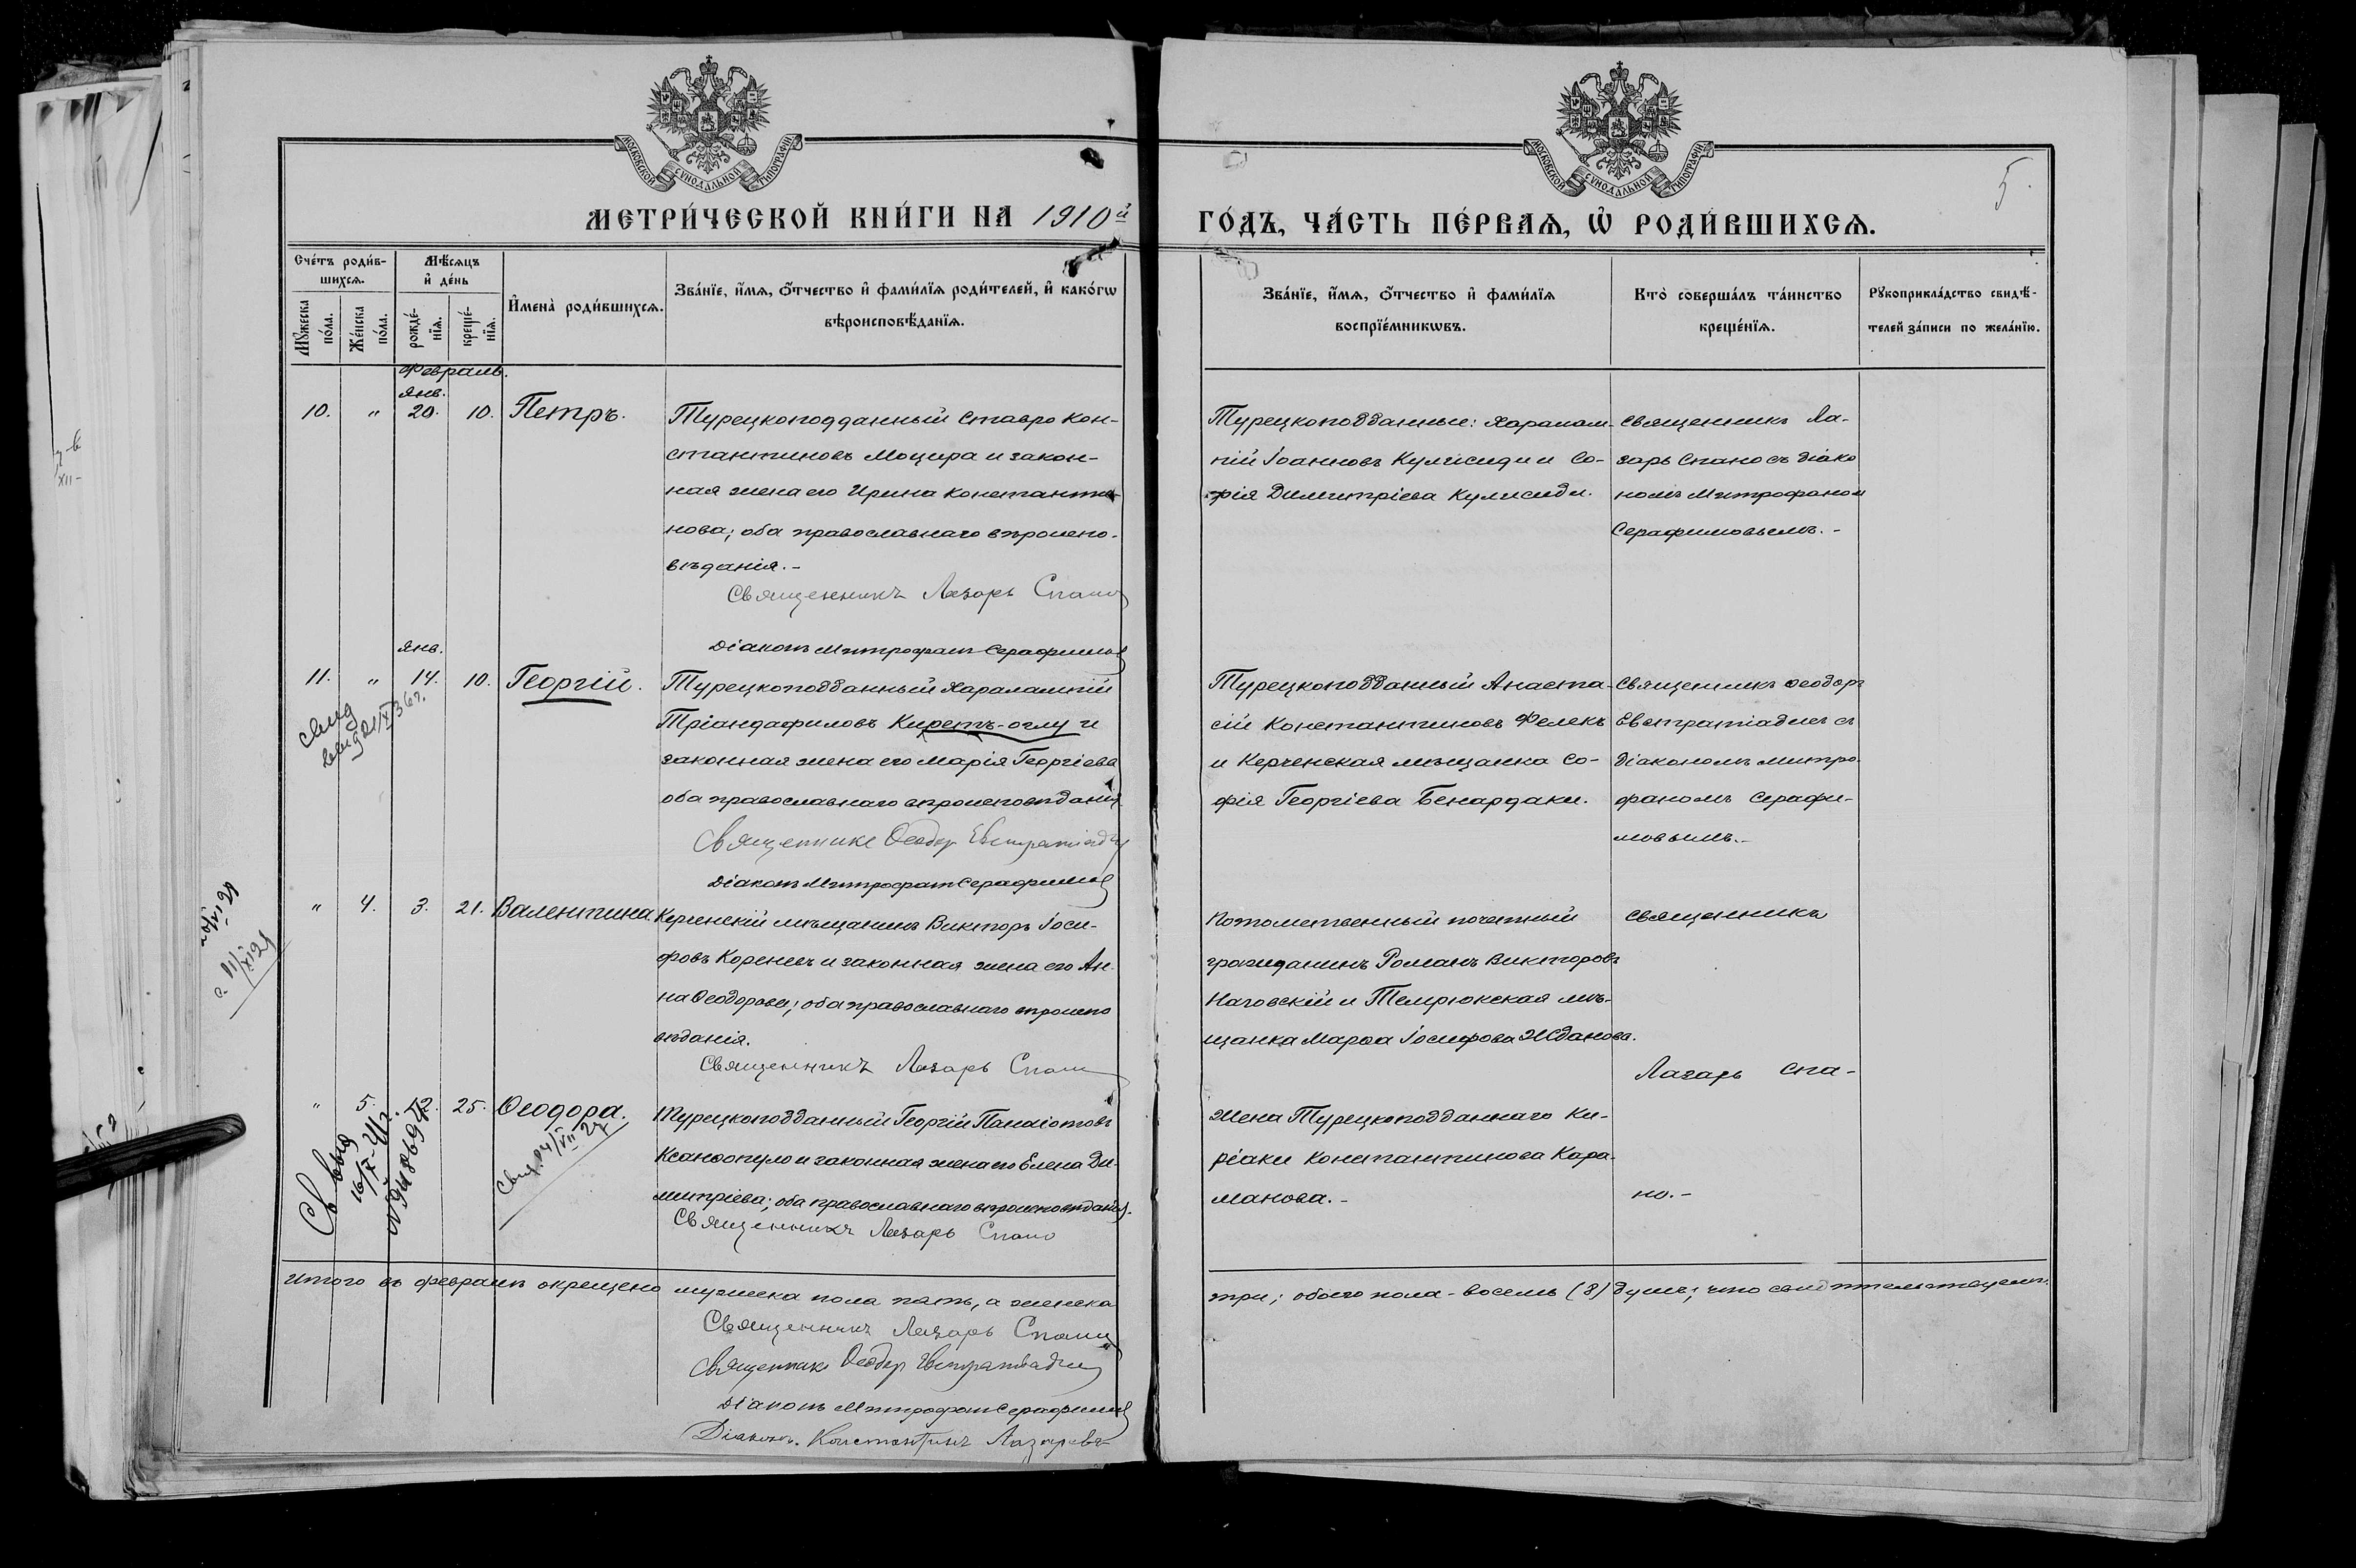 МОСКОВСКОЙ СѴНОДАЛЬНОЙ ТИПОГРАФІИ
МОСКОВСКОЙ СѴНОДАЛЬНОЙ ТИПОГРАФІИ
5.
МЕТРИ́ЧЕСКОЙ КНИ́ГИ НА 1910й
ГО́ДЪ, ЧА́СТЬ ПЕ́РВАѦ, Ѡ҆ РОДИ́ВШИХСѦ.
Сче́тъ роди́в-
шихсѧ.
Мꙋ́жеска по́ла.
Же́нска по́ла.
Мѣ́сѧцъ
и҆ де́нь
рожде́-нїѧ.
креще́-нїѧ.
И҆мена̀ роди́вшихсѧ.
Зва́нїе, и҆́мѧ, ѻ҆́тчество и҆ фами́лїѧ роди́телей, и҆ како́гѡ
вѣроисповѣ́данїѧ.
Зва́нїе, и҆́мѧ, ѻ҆́тчество и҆ фами́лїѧ
воспрїе́мникѡвъ.
Кто̀ соверша́лъ та́инство
креще́нїѧ.
Рꙋкоприкла́дство свидѣ́-
телей за́писи по жела́нїю.
Февраль.
янв.
10. " 20. 10. Петръ.
Турецкоподданный Ставро Кон-
стантиновъ Моцира и закон-
ная жена его Ирина Константи-
нова; оба православнаго вѣроиспо-
вѣданія.-
Священникъ Лазарь Спано
Діаконъ Митрофанъ Серафимовъ
Турецкоподданные: Харалам-
пій Іоанновъ Кулисиди и Со-
фія Димитріева Кулисиди.
Священникъ Ла-
зарь Спано съ діако
номъ Митрофаном
Серафимовымъ.-
янв.
11. " 14. 10. Георгій.
Турецкоподданный Харалампій
Тріандафиловъ Киретъ-оглу и
законная жена его Марія Георгіева
оба православнаго вѣроисповѣданія
Священникъ Ѳеодор Евстратіади
Діаконъ Митрофанъ Серафимовъ
Турецкоподданный Анаста-
сій Константиновъ Фелекъ
и Керченская мѣщанка Со-
фія Георгіева Бенардаки.
Священникъ Ѳеодоръ
Евстратіади съ
діакономъ Митро-
фаномъ Серафи-
мовымъ.-
" 4. 3. 21. Валентина
Керченскій мѣщанинъ Викторъ Іоси-
фовъ Кореневъ и законная жена его Ан-
на Ѳеодорова; оба православнаго вѣроиспо
вѣданія.
Священникъ Лазарь Спано
Потомственный почетный
гражданинъ Романъ Викторовъ
Наговскій и Темрюкская мѣ-
щанка Марѳа Іосифова Жданова.
Священникъ
Лазарь Спа-
но.-
" 5. 12. 25. Ѳеодора.
Свид. 24/VII 24
Турецкоподданный Георгій Панаіотовъ
Ксанѳопуло и законная жена его Елена Ди-
митріева; оба православнаго вѣроисповѣданія.
Священникъ Лазарь Спано
Жена Турецкоподданнаго Ки-
ріаки Константинова Кара-
манова.-
Итого въ февралѣ окрещено мужеска пола пять, а женска
три; обоего пола - восемь (8) душъ; что свидѣтельствуемъ.
Священникъ Лазарь Спано
Священникъ Ѳеодор Евстратіади
Діаконъ Митрофанъ Серафимовъ
Діаконъ. Константинъ Лазаревъ